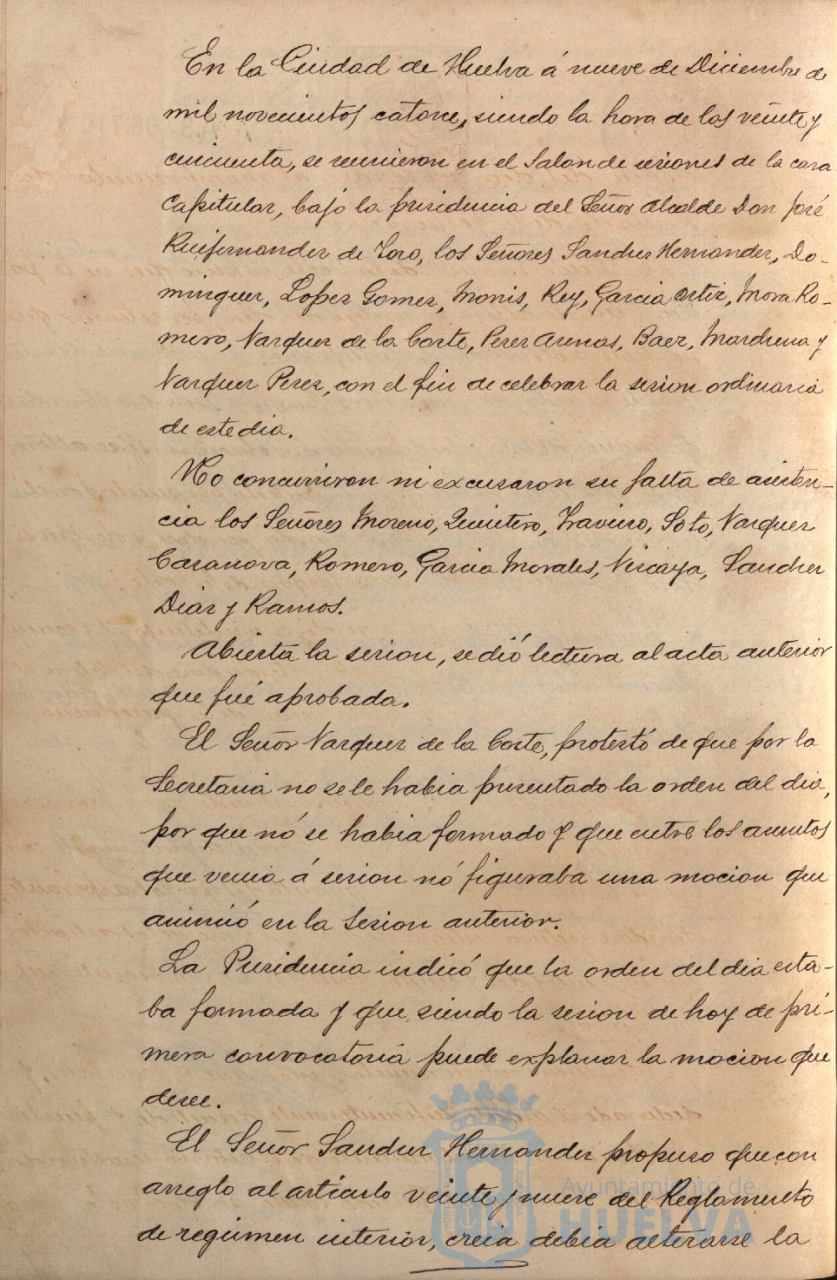 En la Ciudad de Huelva á nueve de Diciembre de
mil novecientos catorce, siendo la hora de las veinte y
cincuenta, se reunieron en el Salon de sesiones de la casa
Capitular, bajo la presidencia del Señor Alcalde Don José
Ruifernandez de Toro, los Señores Sanchez Hernandez, Do-
minguez, Lopez Gomez, Monis, Rey, Garcia Ortiz, Mora Ro-
mero, Vazquez de la Corte, Perez Arenas, Baez, Marchena y
Vazquez Perez, con el fin de celebrar la sesion ordinaria
de este dia.
No concurrieron ni excusaron su falta de asisten-
cia los Señores Moreno, Quintero, Travieso, Soto, Vazquez
Casanova, Romero, Garcia Morales, Viscaya, Sanchez
Diaz y Ramos.
Abierta la sesion, se dió lectura al acta anterior
que fué aprobada.
El Señor Vazquez de la Corte, protestó de que por la
Secretaria no se le habia presentado la orden del dia,
por que nó se habia formado y que entre los asuntos
que venia á sesion nó figuraba una mocion que
anunció en la Sesion anterior.
La Presidencia indicó que la orden del dia esta-
ba formada y que siendo la sesion de hoy de pri-
mera convocatoria puede explanar la mocion que
desee.
El Señor Sanchez Hernandez propuso que con
arreglo al articulo veinte y nueve del Reglamento
de regimen interior, creia debia alterarse la
Ayuntamiento de
HUELVA